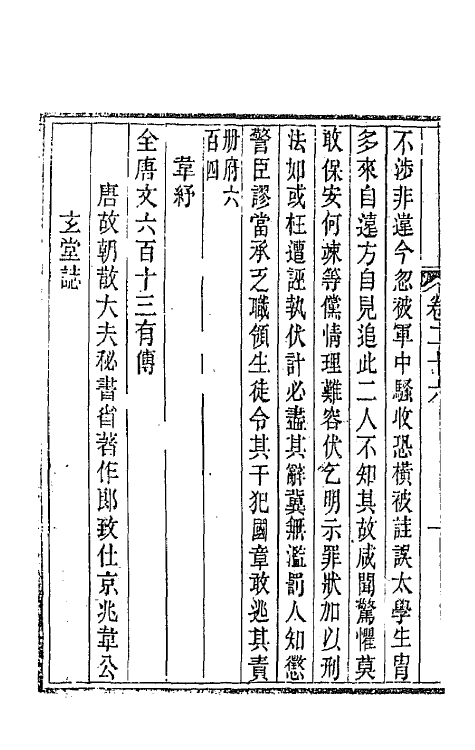 卷二十六
一
不涉非違今忽被軍中騷收恐橫被詿誤太學生胄
多來自遠方自見追此二人不知其故咸聞驚懼莫
敢保安何竦等儻情理難容伏乞明示罪狀加以刑
法如或枉遭誣執伏計必盡其辭冀無濫罰人知懲
警臣謬當承乏職領生徒令其干犯國章敢逃其責
册府六
百四
韋紓
全唐文六百十三有傳
唐故朝散大夫秘書省著作郎致仕京兆韋公
玄堂誌